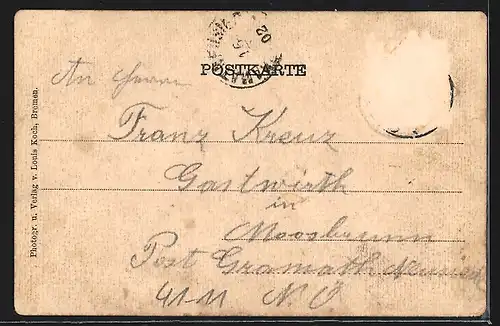 POSTKARTE
An Herrn
Franz Kreuz
Gastwirth
in
Moosbrunn
Post Gramath Neusiedl
N. Ö
Photogr. u. Verlag v. Louis Koch, Bremen.